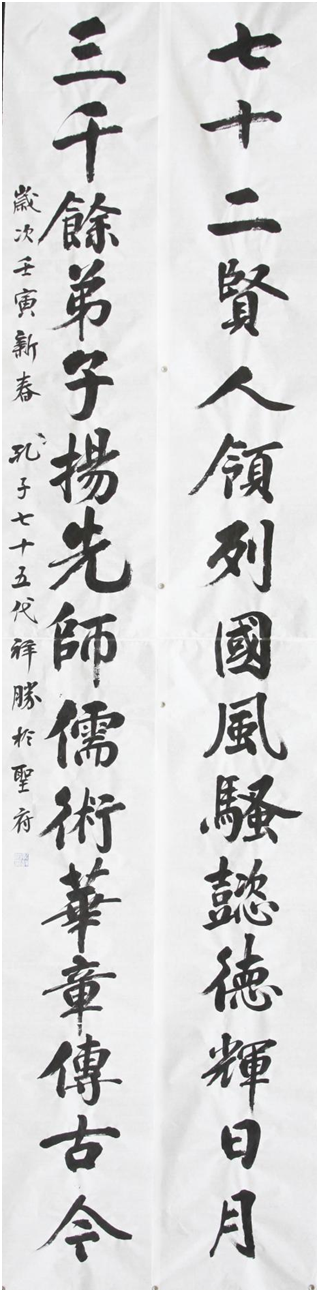 七十二賢人領列國風騷懿德輝日月
三千餘弟子揚先師儒術華章傳古今
歲次壬寅新春 孔子七十五代祥勝於聖府